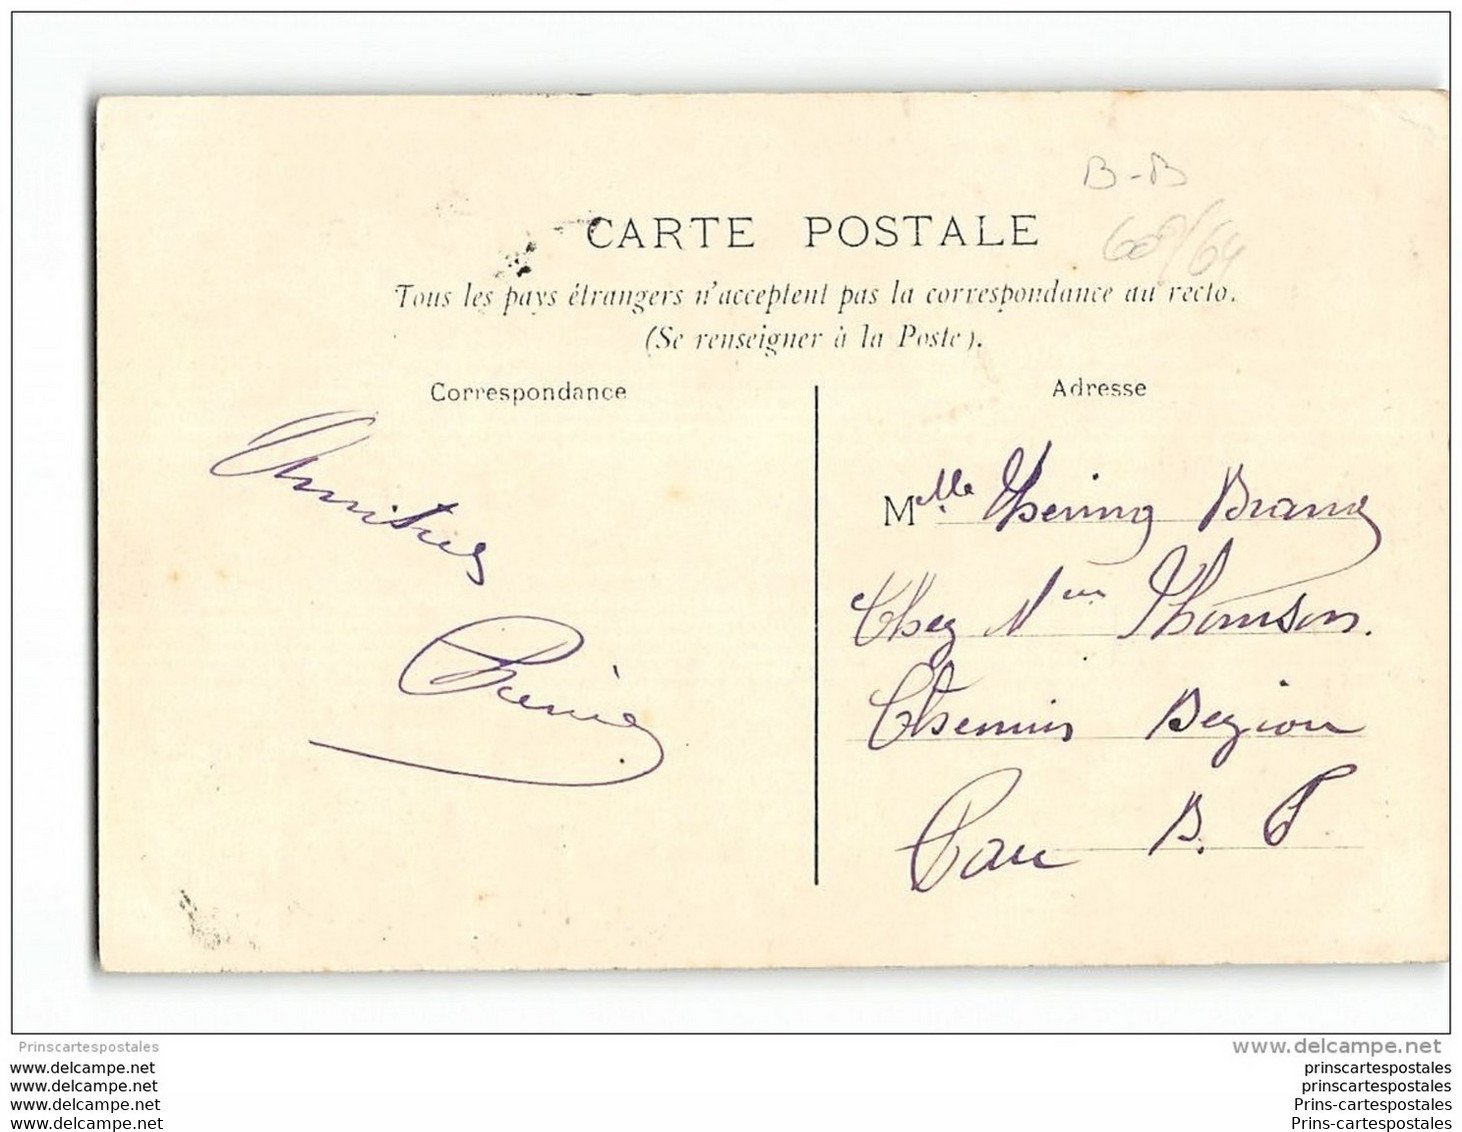 B-B
60/64
CARTE POSTALE
Tous les pays étrangers n'acceptent pas la correspondance au recto.
(Se renseigner à la Poste).
Correspondance
Adresse
Amitiés
Mlle
Chez Thomson.
Chemin
Pau B. P.
Prinscartespostales
www.delcampe.net
www.delcampe.net
www.delcampe.net
www.delcampe.net
www.delcampe.net
prinscartespostales
prinscartespostales
Prins-cartespostales
Prins-cartespostales